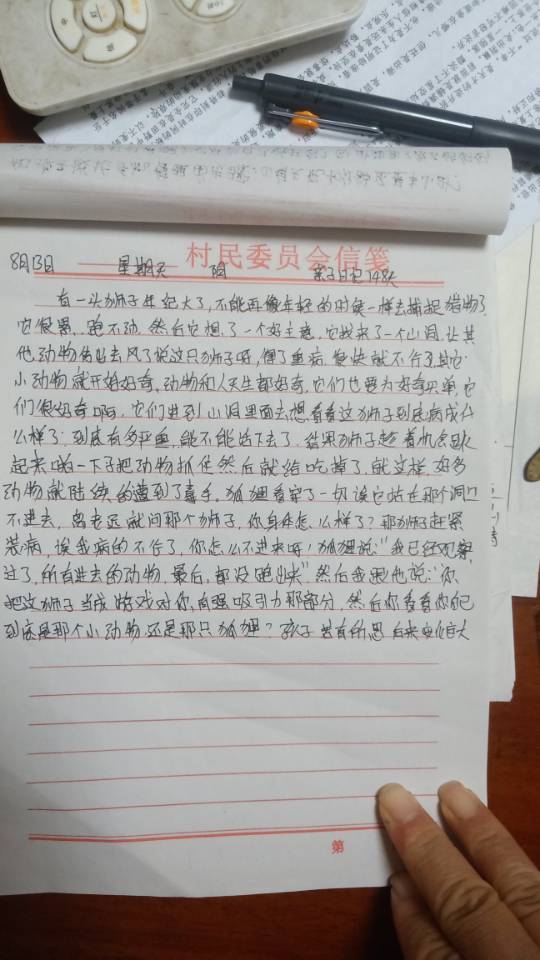 村民委员会信笺
8月13日 星期天 阴 亲子日记148天
有一头狮子年纪大了,不能再像年轻的时候一样去捕捉猎物了
它很累,跑不动,然后它想了一个好主意,它找来了一个山洞,让其
他动物传出去风了说这只狮子呀,得了重病,很快就不行了,其它
小动物就开始好奇,动物和人天生都好奇,它们也要为好奇买单,它
们很好奇啊,它们进到山洞里面去想看看这狮子到底病成什
么样了,到底有多严重,能不能活下去了,结果狮子趁着机会跳
起来啪一下子把动物抓住然后就给吃掉了,就这样,好多
动物就陆续的遭到了毒手,狐狸看穿了一切诶它站在那个洞口
不进去,离老远就问那个狮子,你身体怎么样了?那狮子赶紧
装病,诶我病的不行了,你怎么不进来呀!狐狸说:“我已经观察
过了,所有进去的动物,最后,都没跑出来”然后我跟他说:“你
把这狮子当成游戏对你,有强吸引力那部分,然后你看看你自己
到底是那个小动物还是那只狐狸?孩子若有所思
第